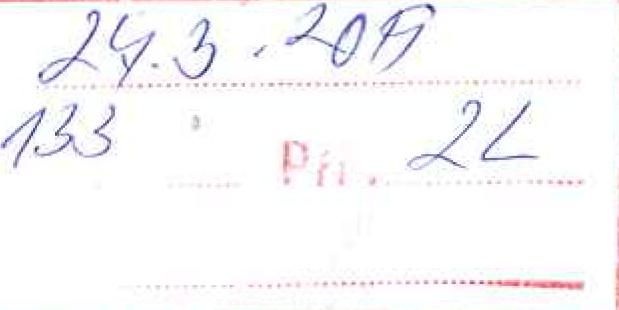 24.3.2017
133 Příl. 2L